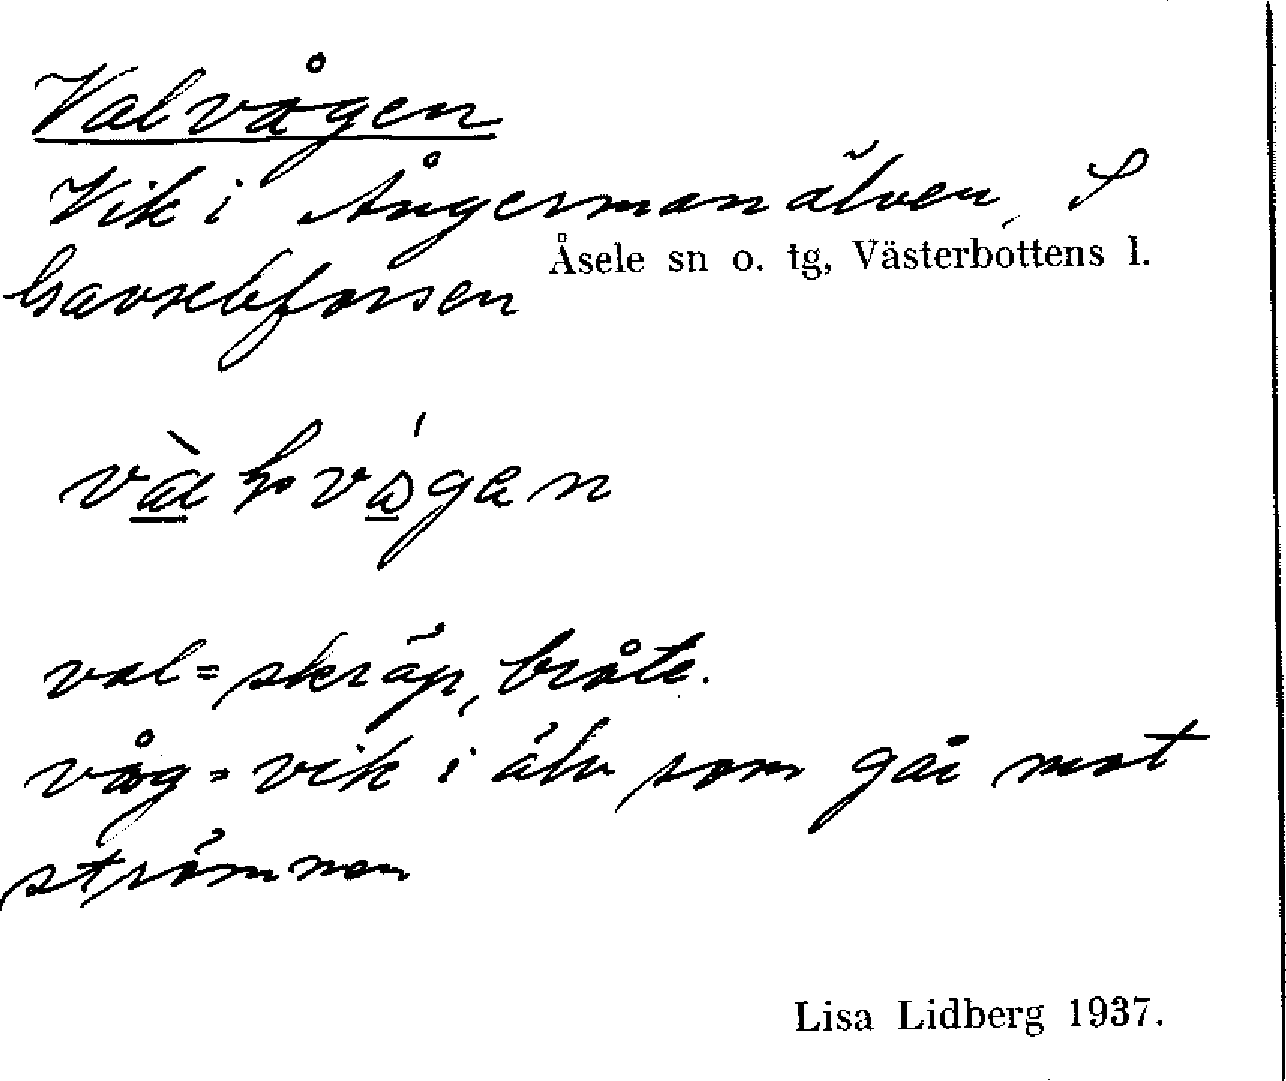 Valvågen
Vik i Ångermanälven, S
Åsele sn o. tg, Västerbottens l.
Gavseleforsen
val = skräp, bråte.
våg = vik i älv som går mot
strömmen
Lisa Lidberg 1937.